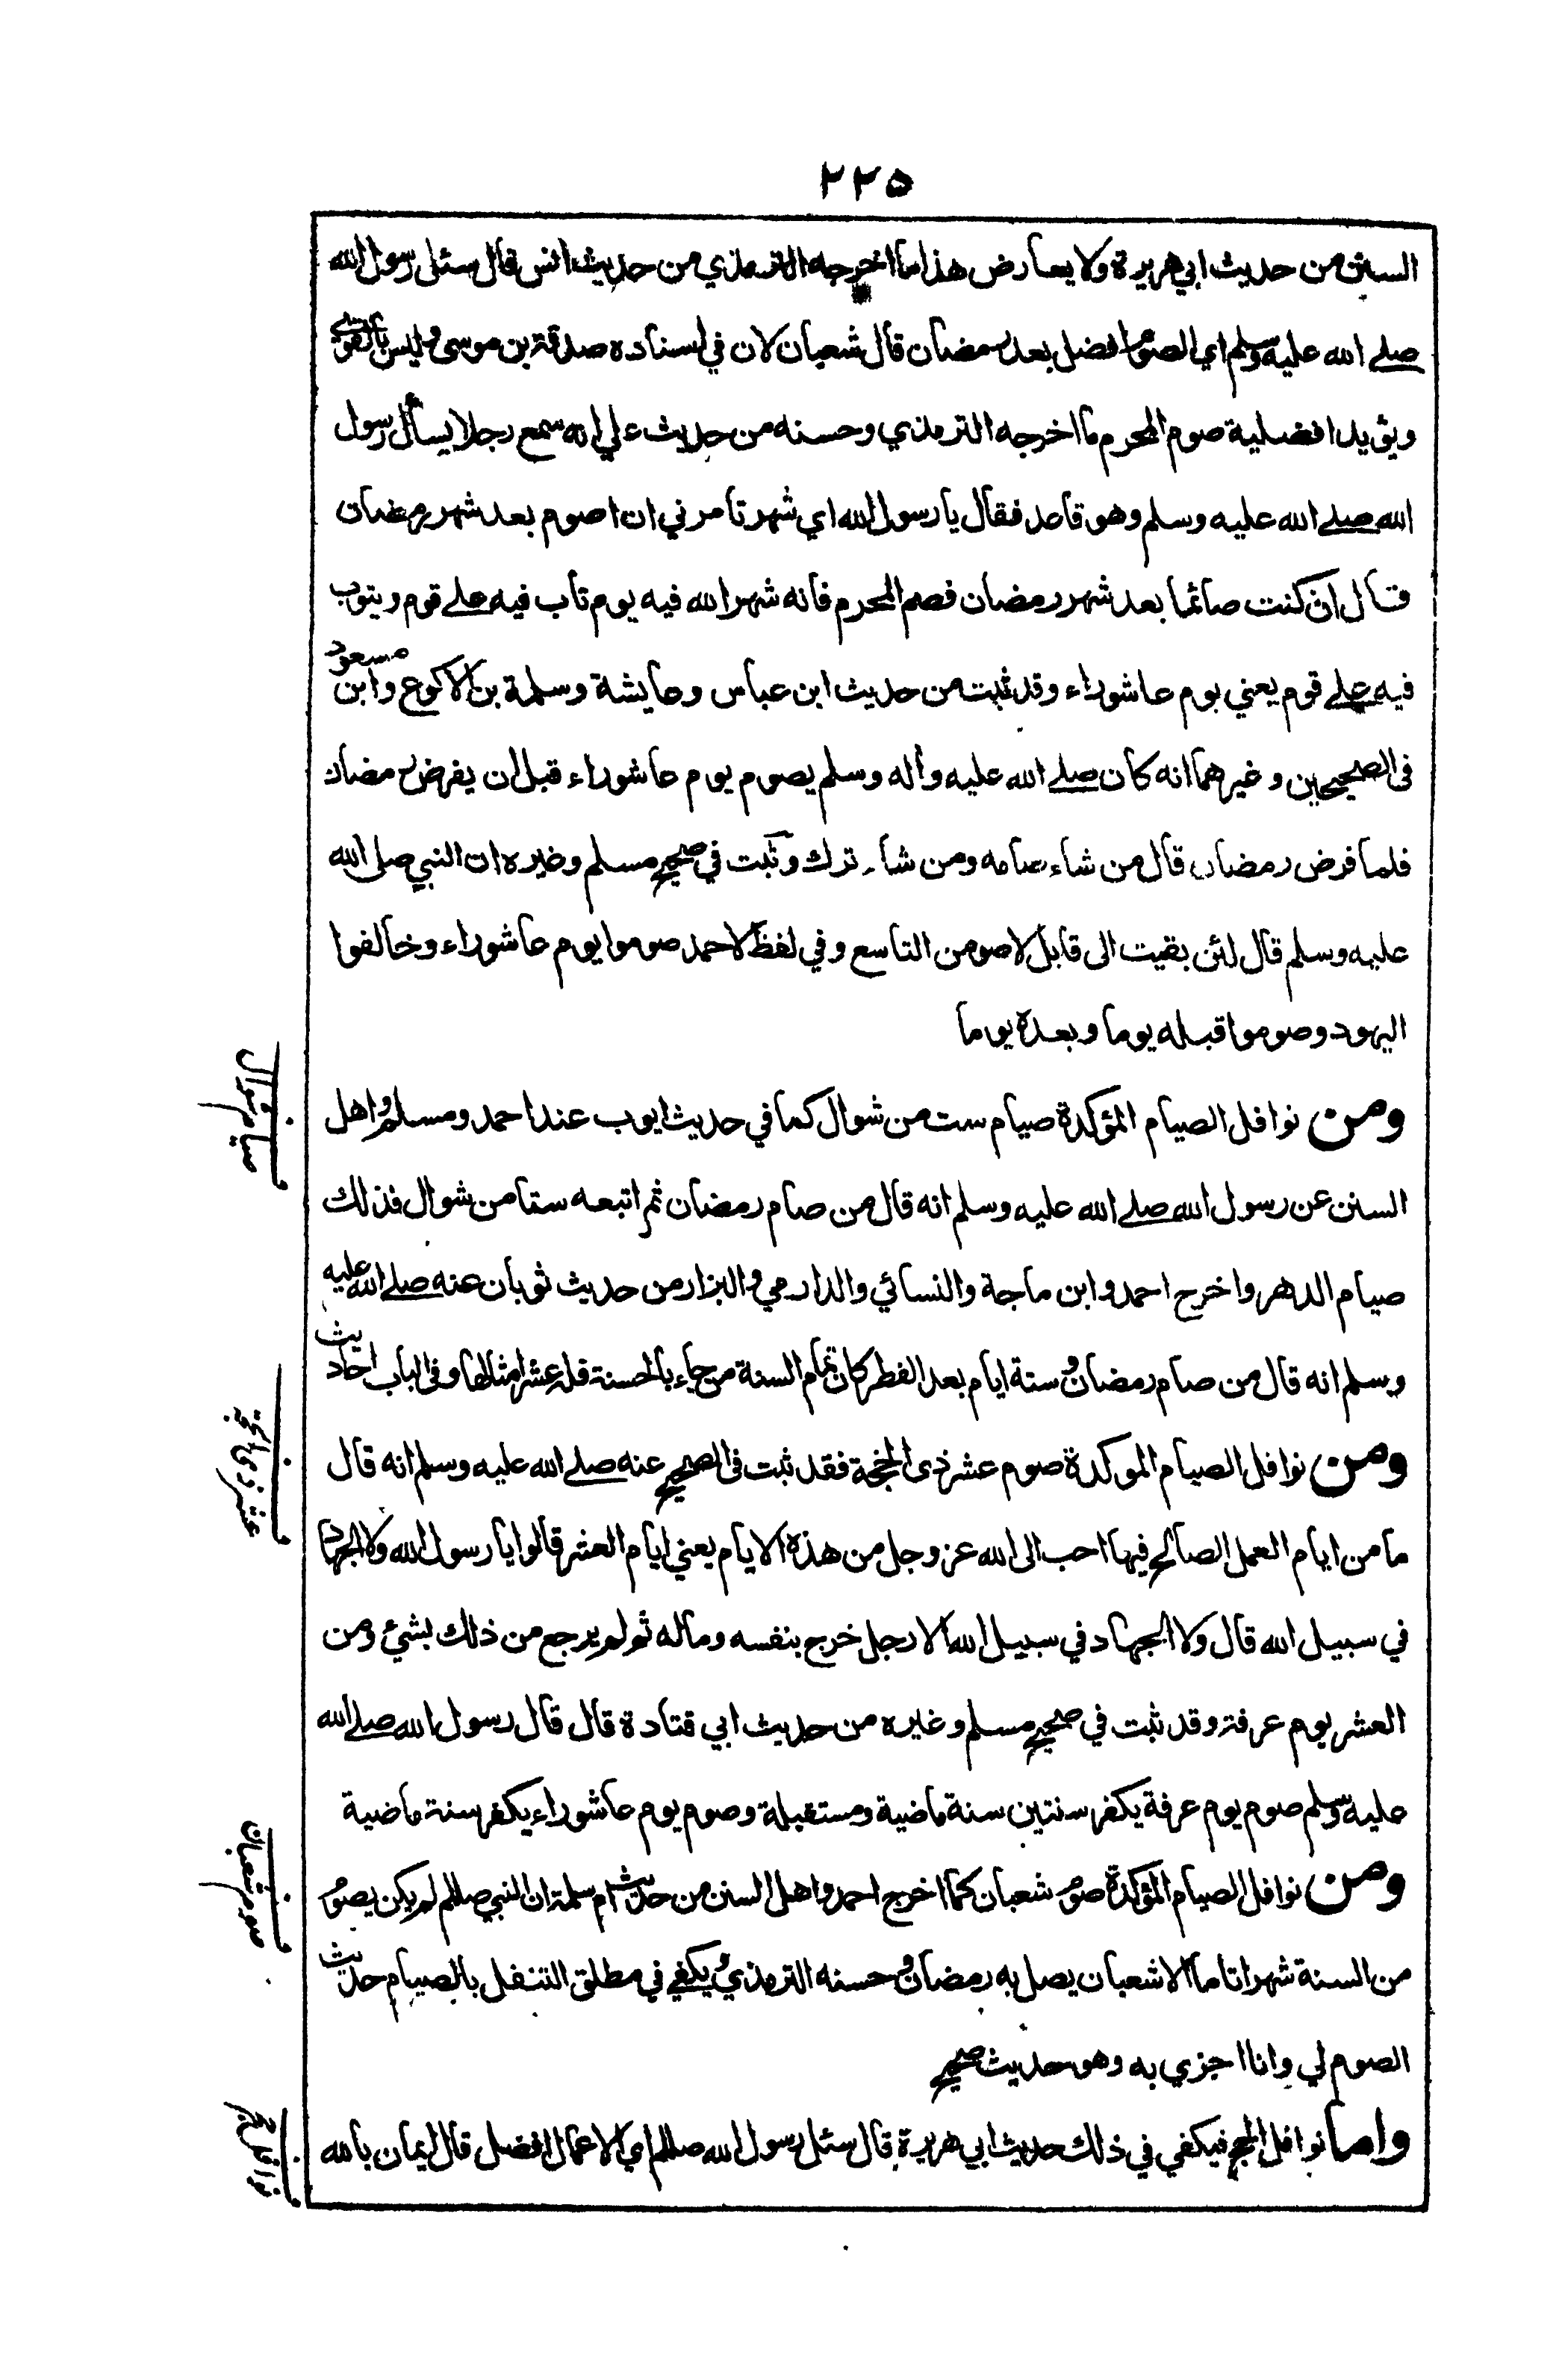 ٢٢٥
السنن من حديث ابي هريرة ولا يعارض هذا ما اخرجه الترمذي من حديث انس قال سئل رسول الله
صلے الله عليه وسلم اي الصوم افضل بعد رمضان قال شعبان لان في اسناده صدقة بن موسى وليس بالقوي
ويؤيد افضلية صوم المحرم ما اخرجه الترمذي وحسنه من حديث علي انه سمع رجلا يسأل رسول
الله صلے الله عليه وسلم وهو قاعد فقال يا رسول الله اي شهر تامرني ان اصوم بعد شهر رمضان
قال ان كنت صائما بعد شهر رمضان فصم المحرم فانه شهر الله فيه يوم تاب فيه علے قوم ويتوب
فيه علے قوم يعني يوم عاشوراء وقد ثبت من حديث ابن عباس وعايشة وسلمة بن الاكوع وابن مسعود
فى الصحيحين وغيرهما انه كان صلے الله عليه وأله وسلم يصوم يوم عاشوراء قبل ان يفرض رمضان
فلما فرض رمضان قال من شاء صامه ومن شاء ترك وثبت في صحيح مسلم وغيره ان النبي صلى الله
عليه وسلم قال لئن بقيت الى قابل لاصومن التاسع وفي لفظ لاحمد صوموا يوم عاشوراء وخالفوا
اليهود وصوموا قبله يوما وبعده يوما
ومن نوافل الصيام المؤكدة صيام ست من شوال كما في حديث ايوب عند احمد ومسلم واهل
السنن عن رسول الله صلے الله عليه وسلم انه قال من صام رمضان ثم اتبعه ستا من شوال فذلك
صيام الدهر واخرج احمد وابن ماجة والنسائي والدارمي والبزار من حديث ثوبان عنه صلے الله عليه
وسلم انه قال من صام رمضان وستة ايام بعد الفطر كان تمام السنة من جاء بالحسنة فله عشر امثالها وفى الباب احاديث
ومن نوافل الصيام الموكدة صوم عشر ذى الحجة فقد ثبت فى الصحيح عنه صلے الله عليه وسلم انه قال
ما من ايام العمل الصالح فيها احب الى الله عز وجل من هذه الايام يعني ايام العشر قالوا يا رسول الله ولا الجهاد
في سبيل الله قال ولا الجهاد في سبيل الله الا رجل خرج بنفسه وماله ثم لم يرجع من ذلك بشيء ومن
العشر يوم عرفة وقد ثبت في صحيح مسلم وغيره من حديث ابي قتادة قال قال رسول الله صلے الله
عليه وسلم صوم يوم عرفة يكفر سنتين سنة ماضية ومستقبلة وصوم يوم عاشوراء يكفر سنة ماضية
ومن نوافل الصيام المؤكدة صوم شعبان كما اخرج احمد واهل السنن من حديث ام سلمة ان النبي صللم لم يكن يصوم
من السنة شهرا تاما الا شعبان يصل به رمضان وحسنه الترمذي ويكفي في مطلق التنفل بالصيام حديث
الصوم لي وانا اجزي به وهو حديث صحيح
واما نوافل الحج فيكفي في ذلك حديث ابي هريرة قال سئل رسول الله صللم اي الاعمال افضل قال ايمان بالله
صيام شوال
عشر ذى الحجة
صوم شعبان
نوافل حج